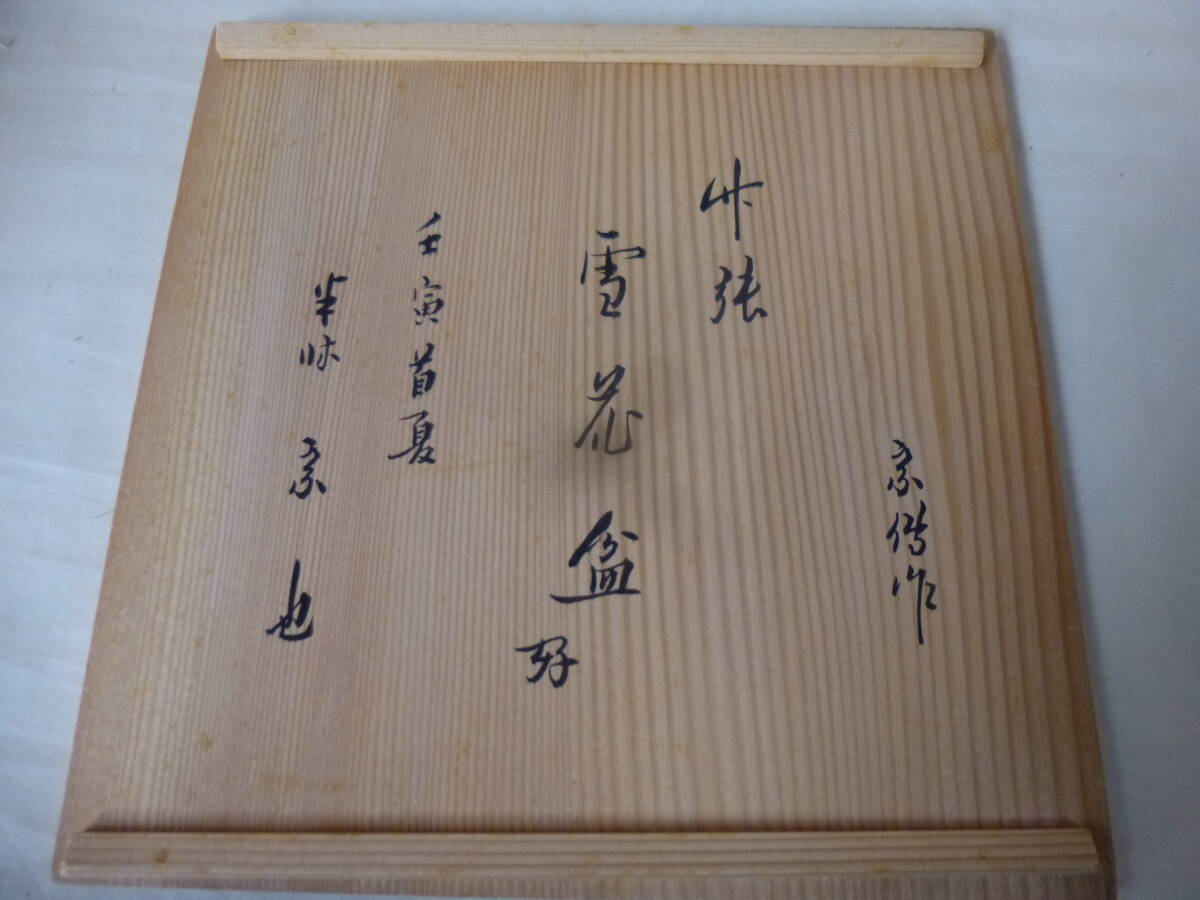 宗傳作
竹張
雪花盆
好
壬寅首夏
半床 宗也